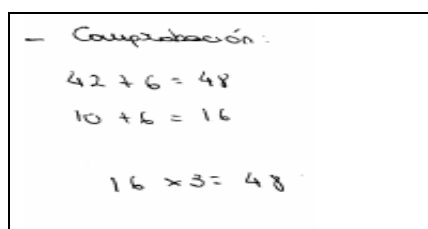 - Comprobación:
42 + 6 = 48
10 + 6 = 16
16 x 3 = 48